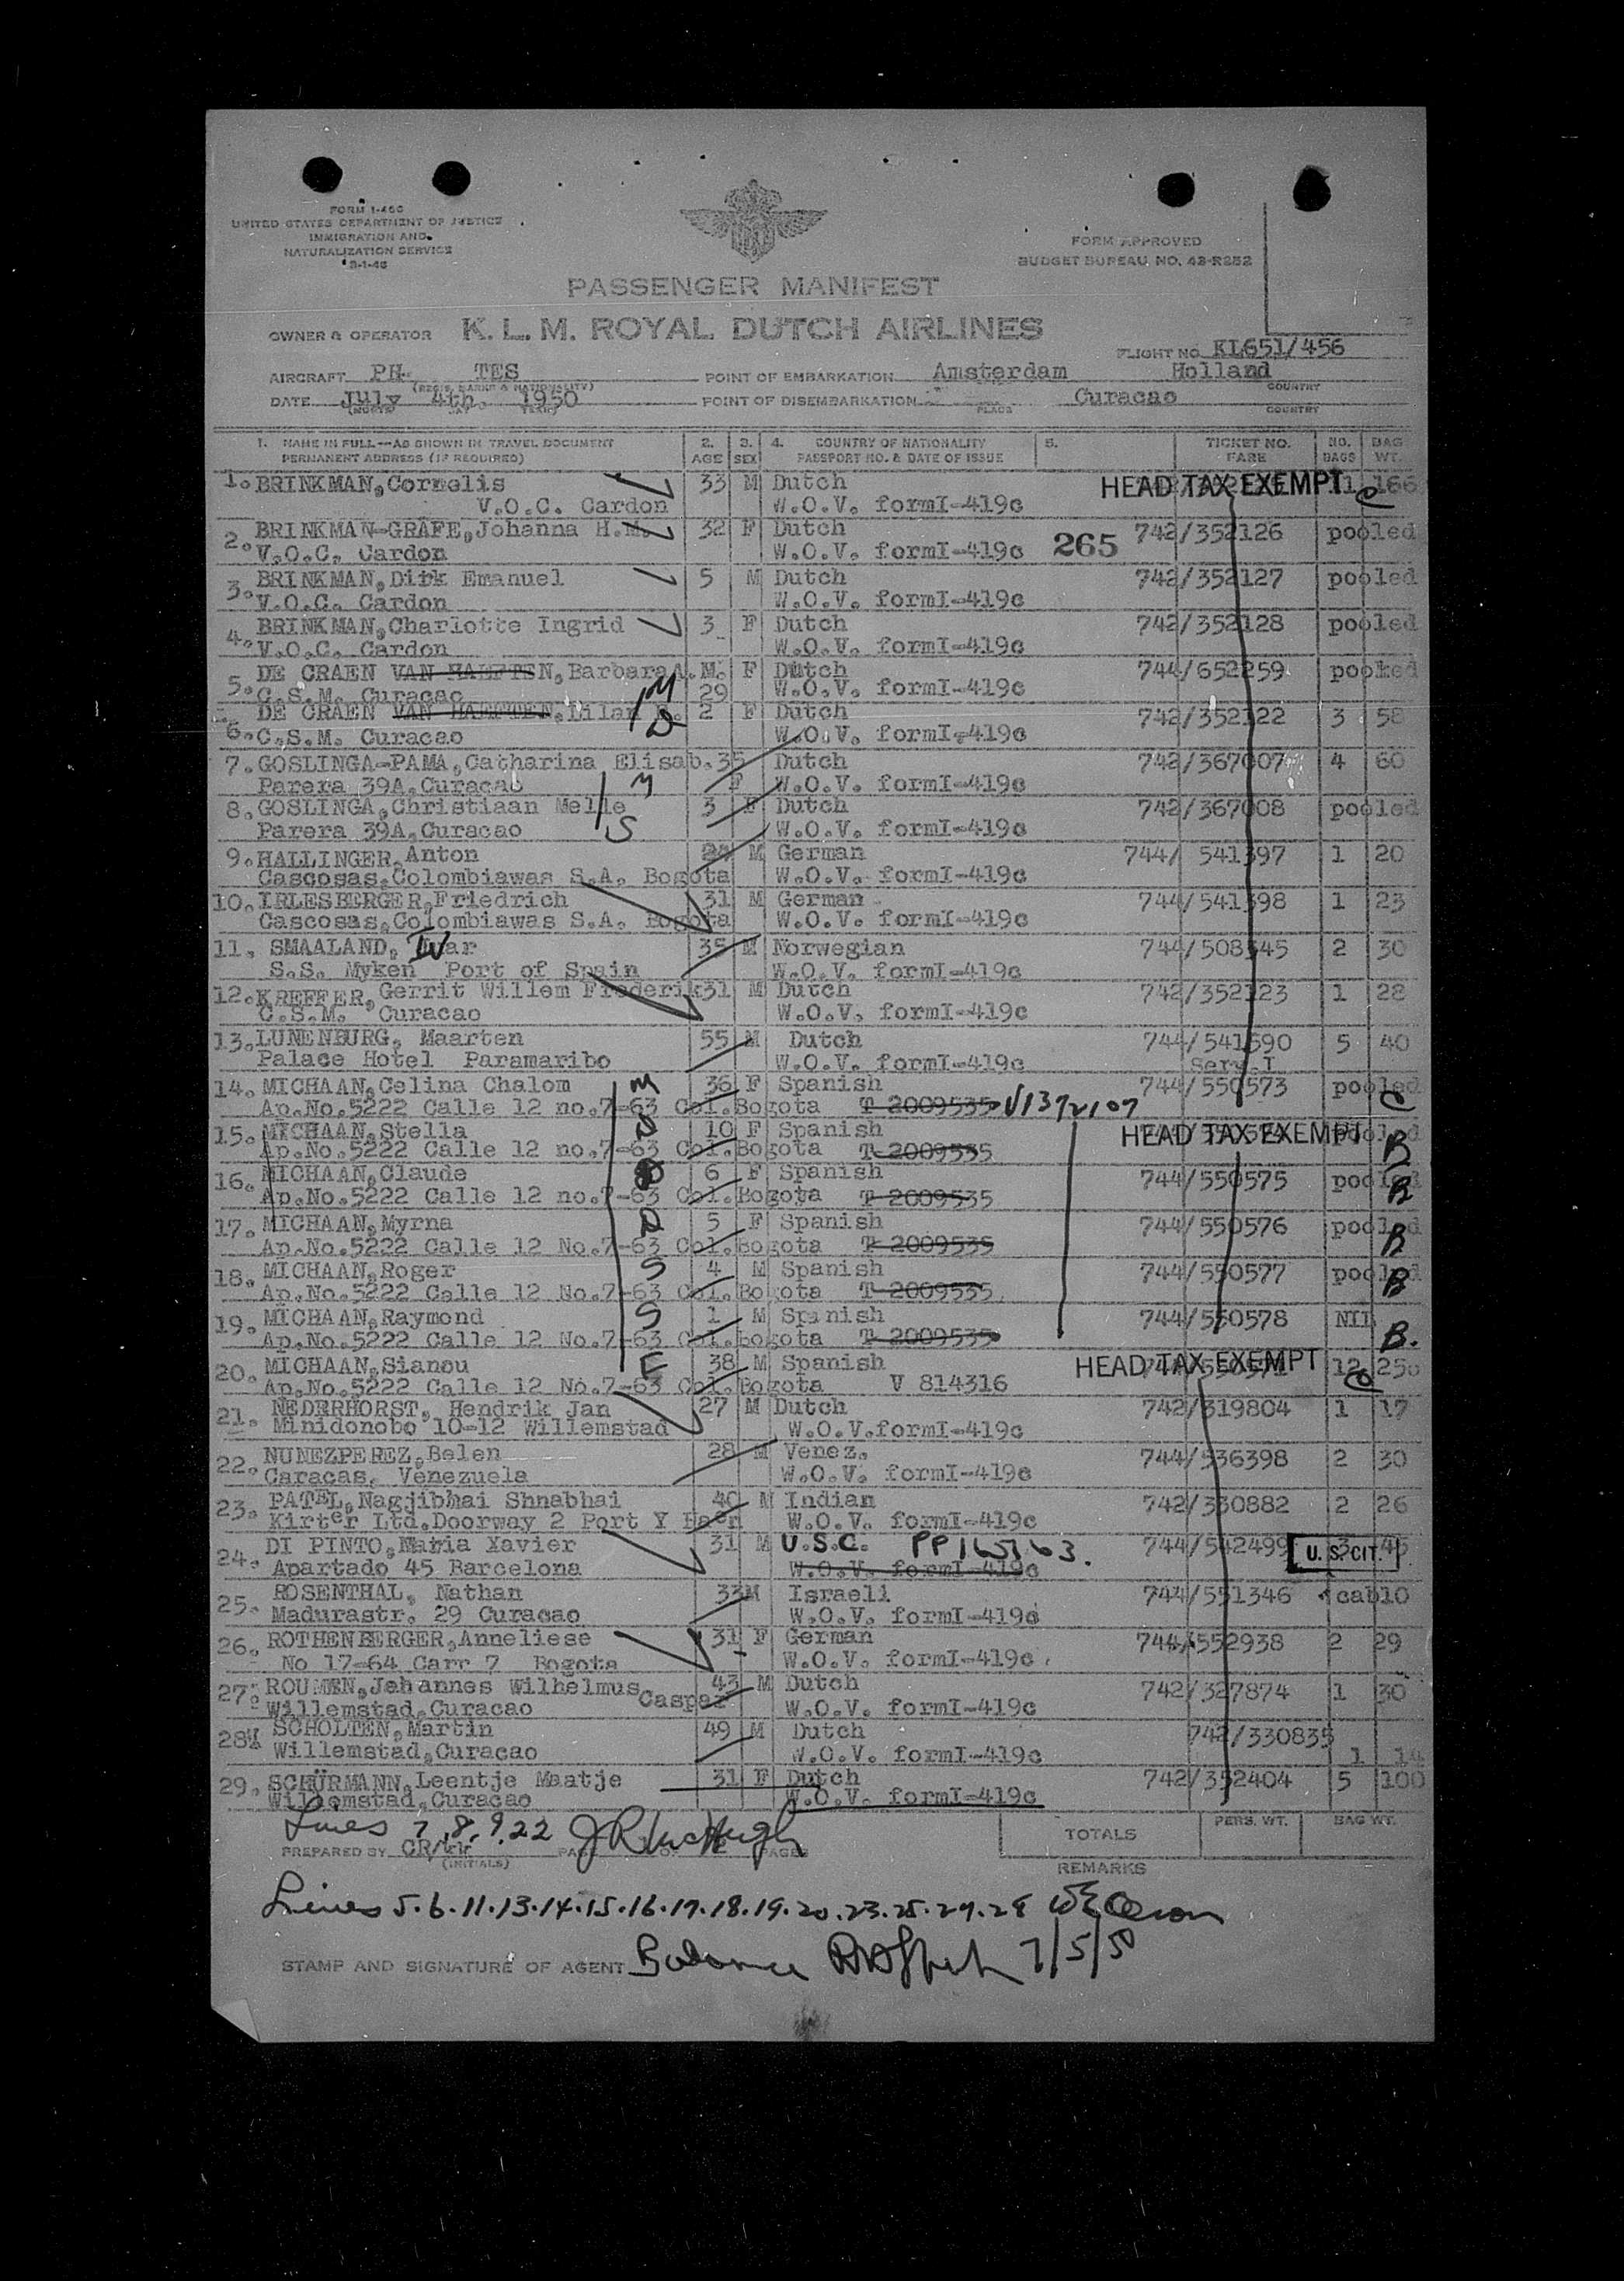 FORM I-466
UNITED STATES DEPARTMENT OF JUSTICE
IMMIGRATION AND
NATURALIZATION SERVICE
FORM APPROVED
BUDGET BUREAU NO. 43-R252
PASSENGER MANIFEST
OWNER & OPERATOR K. L. M. ROYAL DUTCH AIRLINES
FLIGHT NO. KL651/456
AIRCRAFT PH- TES POINT OF EMBARKATION Amsterdam Holland
(REGIS. MARKS & NATIONALITY) COUNTRY
DATE July 4th, 1950 POINT OF DISEMBARKATION Curacao
(MONTH) DAY YEAR) PLACE COUNTRY
1. NAME IN FULL—AS SHOWN IN TRAVEL DOCUMENT 2. 3. 4. COUNTRY OF NATIONALITY 5. TICKET NO. NO. BAG
PERMANENT ADDRESS (IF REQUIRED) AGE SEX PASSPORT NO. & DATE OF ISSUE FARE BAGS WT.
1. BRINKMAN, Cornelis 33 M Dutch HEAD TAX EXEMPT 166
V.O.C. Cardon W.O.V. formI-419c
2. BRINKMAN-GRAFE, Johanna H.M. 32 F Dutch 742/352126 pooled
V.O.C. Cardon W.O.V. formI-419c 265
3. BRINKMAN, Dirk Emanuel 5 M Dutch 742/352127 pooled
V.O.C. Cardon W.O.V. formI-419c
4. BRINKMAN, Charlotte Ingrid 3 F Dutch 742/352128 pooled
V.O.C. Cardon W.O.V. formI-419c
5. DE CRAEN VAN HAEFTEN, Barbara A.M. F Dutch 744/652259 pooled
C.S.M. Curacao M 29 W.O.V. formI-419c
6. DE CRAEN VAN HAEFTEN, Lilan 2 F Dutch 742/352122 3 58
C.S.M. Curacao D W.O.V. formI-419c
7. GOSLINGA-PAMA, Catharina Elisab. 35 Dutch 742/367007 4 60
Parera 39A, Curacao M F W.O.V. formI-419c
8. GOSLINGA, Christiaan Melle 3 F Dutch 742/367008 pooled
Parera 39A, Curacao S W.O.V. formI-419c
9. HALLINGER, Anton M German 744/ 541397 1 20
Cascosas, Colombiawas S.A. Bogota W.O.V. formI-419c
10. IRLESBERGER, Friedrich 31 M German 744/541398 1 23
Cascosas, Colombiawas S.A. Bogota W.O.V. formI-419c
11. SMAALAND, Ivar 35 M Norwegian 744/508345 2 30
S.S. Myken Port of Spain W.O.V. formI-419c
12. KREFFER, Gerrit Willem Frederik 31 M Dutch 742/352123 1 28
C.S.M. Curacao W.O.V. formI-419c
13. LUNENBURG, Maarten 55 M Dutch 744/541590 5 40
Palace Hotel Paramaribo W.O.V. formI-419c Serv.I
14. MICHAAN, Celina Chalom M 36 F Spanish 744/550573 pooled
Ap.No.5222 Calle 12 no.7-63 Col. Bogota T 2009535 V1372107 C
15. MICHAAN, Stella D 10 F Spanish HEAD TAX EXEMPT
Ap.No.5222 Calle 12 no.7-63 Col. Bogota T 2009535 B
16. MICHAAN, Claude D 6 F Spanish 744/550575 pooled
Ap.No.5222 Calle 12 no.7-63 Col. Bogota T 2009535 B
17. MICHAAN, Myrna D 5 F Spanish 744/550576 pooled
Ap.No.5222 Calle 12 No.7-63 Col. Bogota T 2009535 B
18. MICHAAN, Roger S 4 M Spanish 744/550577 pooled
Ap.No.5222 Calle 12 No.7-63 Col. Bogota T 2009535 B
19. MICHAAN, Raymond S 1 M Spanish 744/550578 NIL
Ap.No.5222 Calle 12 No.7-63 Col. bogota T 2009535 B.
20. MICHAAN, Siansu E 38 M Spanish HEAD TAX EXEMPT 12 250
Ap.No.5222 Calle 12 No.7-63 Col. Bogota V 814316
21. NEDERHORST, Hendrik Jan 27 M Dutch 742/319804 1 17
Minidonobo 10-12 Willemstad W.O.V. formI-419c
22. NUNEZPEREZ, Belen 28 M Venez. 744/536398 2 30
Caracas, Venezuela W.O.V. formI-419c
23. PATEL, Nagjibhai Shnabhai 40 M Indian 742/330882 2 26
Kirter Ltd. Doorway 2 Port Y W.O.V. formI-419c
24. DI PINTO, Maria Xavier 31 M U.S.C. PP165763. 744/542499 3 45
Apartado 45 Barcelona W.O.V. formI-419c U. S. CIT.
25. ROSENTHAL, Nathan 33M Israeli 744/551346 cab10
Madurastr. 29 Curacao W.O.V. formI-419c
26. ROTHENBERGER, Anneliese 31 F German 744/552938 2 29
No 17-64 Carr 7 Bogota W.O.V. formI-419c
27. ROUMEN, Johannes Wilhelmus Caspar 43 M Dutch 742/327874 1 30
Willemstad, Curacao W.O.V. formI-419c
28. SCHOLTEN, Martin 49 M Dutch 742/330835
Willemstad, Curacao W.O.V. formI-419c 1 14
29. SCHÜRMANN, Leentje Maatje 31 F Dutch 742/352404 5 100
Willemstad, Curacao W.O.V. formI-419c
Lines 7, 8, 9, 22 J R McHugh
PREPARED BY CR/ TOTALS PERS. WT. BAG WT.
(INITIALS)
REMARKS
Lines 5.6.11.13.14.15.16.17.18.19.20.23.25.27.28
STAMP AND SIGNATURE OF AGENT Balance 7/5/50